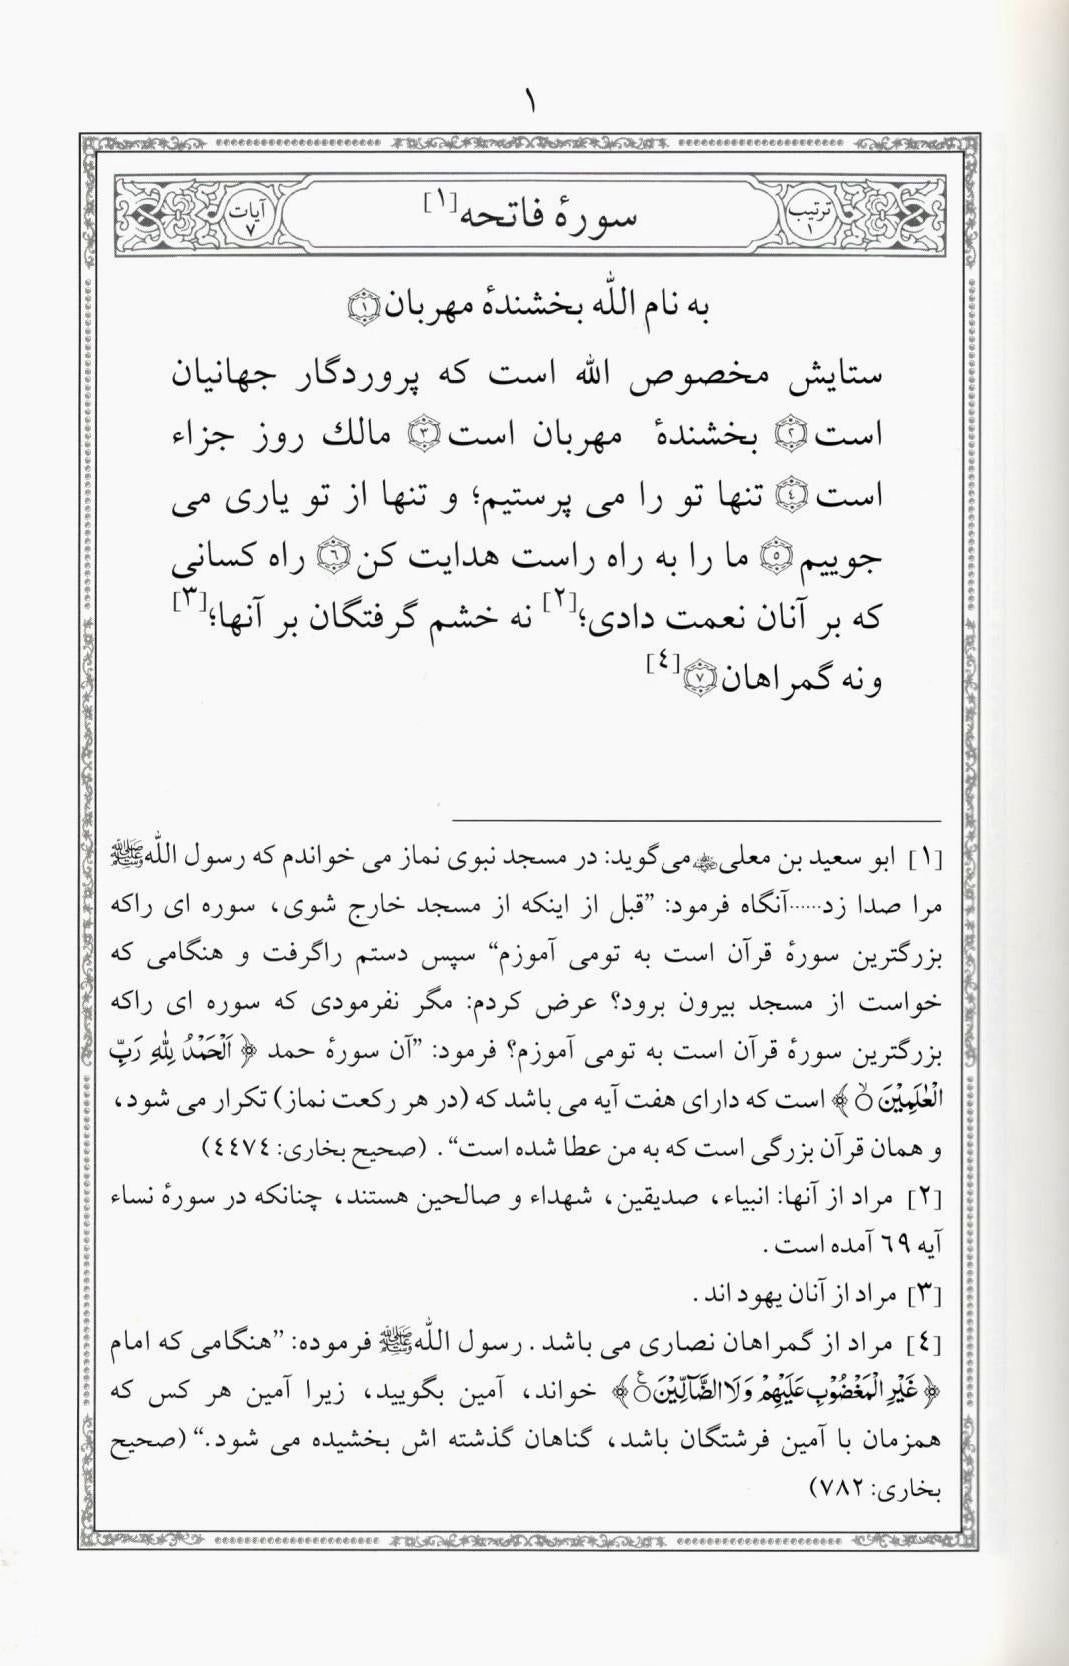 ١
ترتیب
١
سورهٔ فاتحه[١]
آیات
٧
به نام الله بخشندهٔ مهربان١
ستایش مخصوص الله است که پروردگار جهانیان
است٢ بخشندهٔ مهربان است٣ مالك روز جزاء
است٤ تنها تو را می پرستیم؛ و تنها از تو یاری می
جوییم٥ ما را به راه راست هدایت کن٦ راه کسانی
که بر آنان نعمت دادی؛[٢] نه خشم گرفتگان بر آنها؛[٣]
ونه گمراهان٧[٤]
[١] ابو سعید بن معلیؓ می‌گوید: در مسجد نبوی نماز می خواندم که رسول اللهﷺ
مرا صدا زد......آنگاه فرمود: ”قبل از اینکه از مسجد خارج شوی، سوره ای راکه
بزرگترین سورهٔ قرآن است به تومی آموزم“ سپس دستم راگرفت و هنگامی که
خواست از مسجد بیرون برود؟ عرض کردم: مگر نفرمودی که سوره ای راکه
بزرگترین سورهٔ قرآن است به تومی آموزم؟ فرمود: ”آن سورهٔ حمد ﴿ اَلْحَمْدُ لِلّٰهِ رَبِّ
الْعٰلَمِيْنَ ۙ﴾ است که دارای هفت آیه می باشد که (در هر رکعت نماز) تکرار می شود،
و همان قرآن بزرگی است که به من عطا شده است“. (صحیح بخاری: ٤٤٧٤)
[٢] مراد از آنها: انبیاء، صدیقین، شهداء و صالحین هستند، چنانکه در سورهٔ نساء
آیه ٦٩ آمده است.
[٣] مراد از آنان یهود اند.
[٤] مراد از گمراهان نصاری می باشد. رسول اللهﷺ فرموده: ”هنگامی که امام
﴿ غَيْرِ الْمَغْضُوْبِ عَلَيْهِمْ وَلَا الضَّآلِّيْنَ ﴾ خواند، آمین بگویید، زیرا آمین هر کس که
همزمان با آمین فرشتگان باشد، گناهان گذشته اش بخشیده می شود.“ (صحیح
بخاری: ٧٨٢)